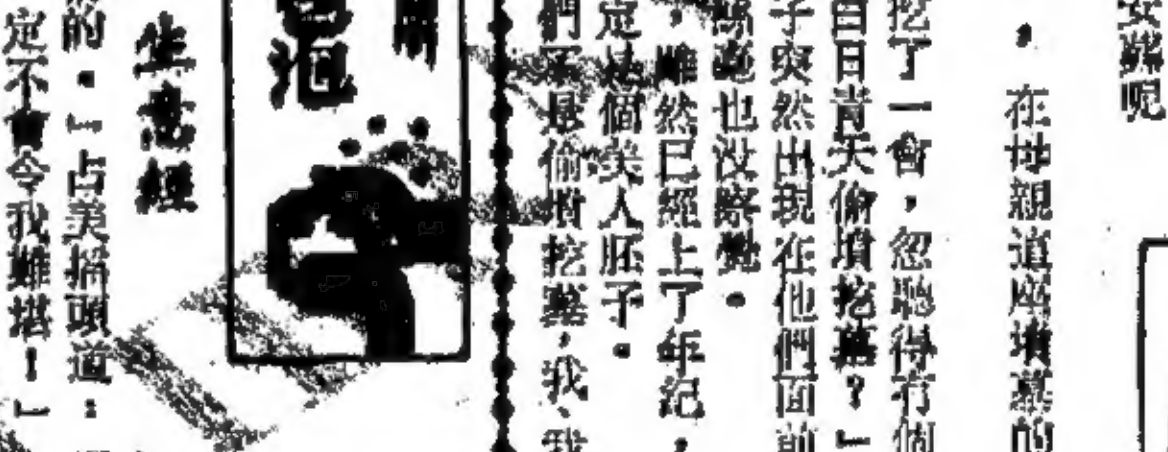 安葬呢
。在母親這座墳墓的
挖了一會，忽聽得有個
白日青天偷墳挖墓？」
子突然出現在他們面前
也没察覺。
，雖然已經上了年记，
定是個美人胚子。
們不是偷墳挖墓，我、我
泡
生意經
的。」占美搖頭道：
定不會令我難堪！」